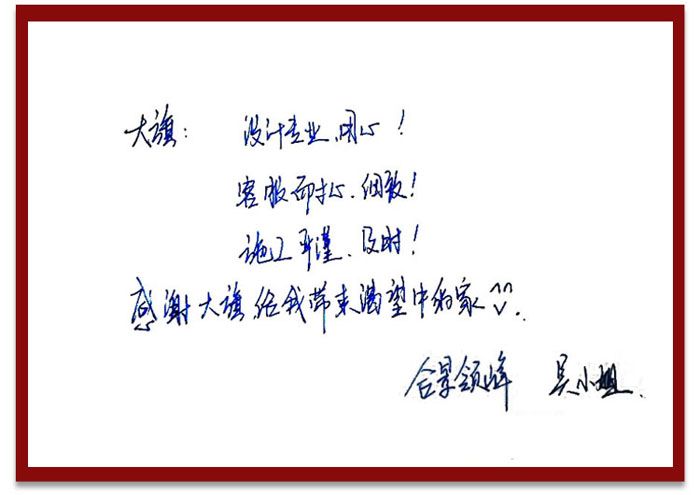 大旗: 设计专业、用心!
客服耐心、细致!
施工严谨、及时!
感谢大旗给我带来渴望中的家^^.
合景领峰 吴小姐.